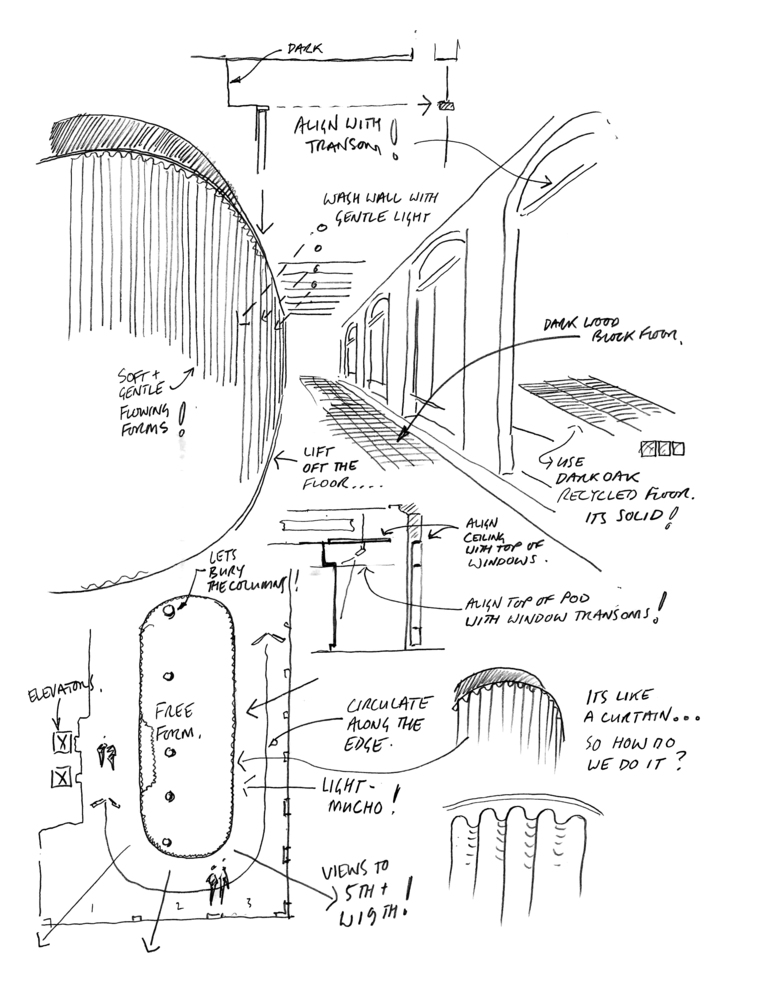 DARK
ALIGN WITH
TRANSOM!
WASH WALL WITH
GENTLE LIGHT
DARK WOOD
BLOCK FLOOR.
SOFT +
GENTLE
FLOWING
FORMS!
LIFT
OFF THE
FLOOR....
USE
DARK OAK
RECYCLED FLOOR.
ITS SOLID!
ALIGN
CEILING
WITH TOP OF
WINDOWS.
LETS
BURY
THE COLUMNS!
ALIGN TOP OF POD
WITH WINDOW TRANSOMS!
ELEVATORS.
FREE
FORM.
CIRCULATE
ALONG THE
EDGE.
ITS LIKE
A CURTAIN...
SO HOW DO
WE DO IT?
LIGHT -
MUCHO!
VIEWS TO
5TH +
W19TH!
1 2 3